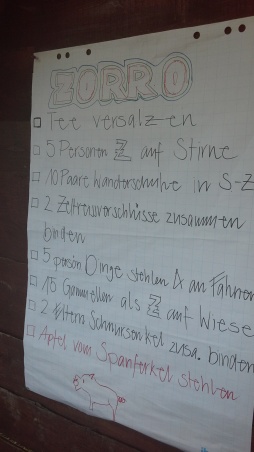 ZORRO
□ Tee versalzen
□ 5 Personen Z auf Stirne
□ 10 Paare Wanderschuhe in S-Z
□ 2 Zeltreissverschlüsse zusammen
binden
□ 5 persön Dinge stehlen & an Fahnen
□ 15 Gamellen als Z auf Wiese
□ 2 Schnürsenkel zusa. binden
□ Apfel vom Spanferkel stehlen